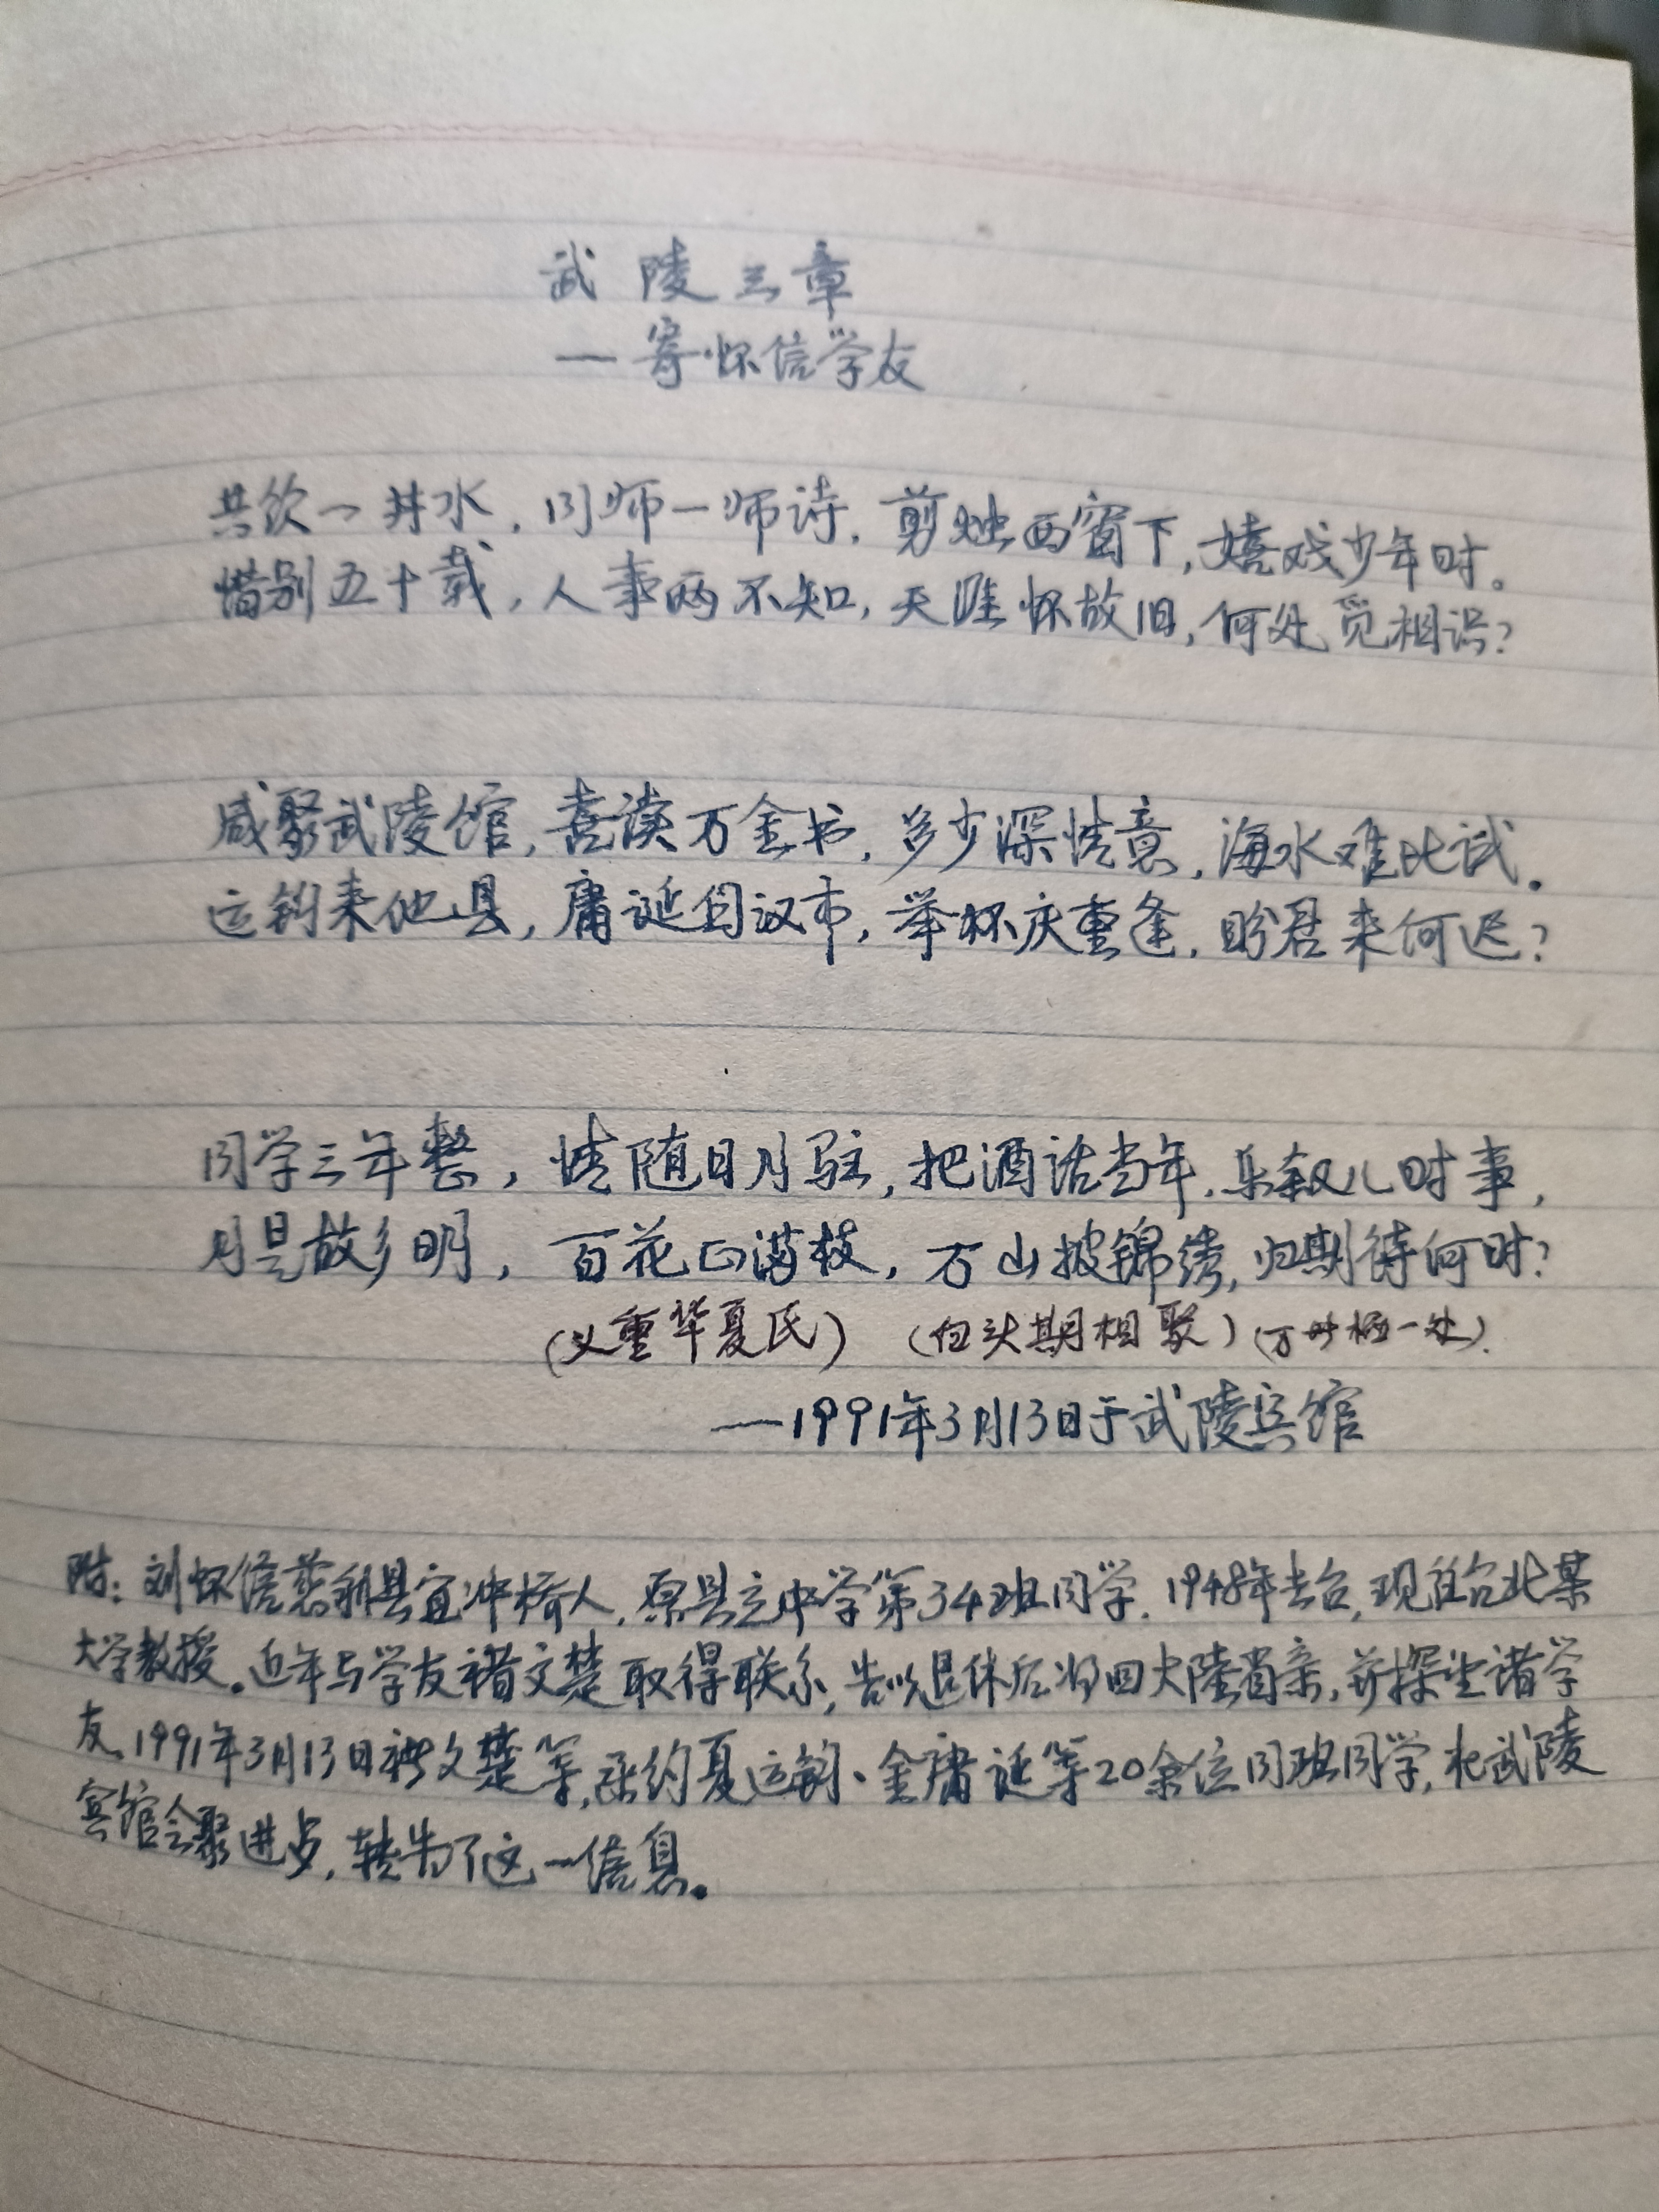 武陵三章
—寄怀信学友
共饮一井水，同师一师诗．剪烛西窗下，嬉戏少年时。
惜别五十载，人事两不知，天涯怀故旧，何处觅相识？
咸聚武陵馆，喜读万金书，多少深情意，海水难比试．
运钊来他县，庸诞自汉市，举杯庆重逢，盼君来何迟？
同学三年整，情随日月驻，把酒话当年．乐叙儿时事，
月是故乡明，百花正满枝，万山披锦绣，归期待何时？
（义重华夏氏）（白头期相聚）
——1991年3月13日于武陵宾馆
附：刘怀信慈利县宜冲桥人．原县立中学第34班同学．1948年去台，现任台北某
大学教授。近年与学友褚文楚取得联系，告以退休后将回大陆省亲，并探望诸学
友．1991年3月13日褚文楚等，函约夏运钊、金庸诞等20余位同班同学，在武陵
宾馆会聚进步，转告了这一信息。